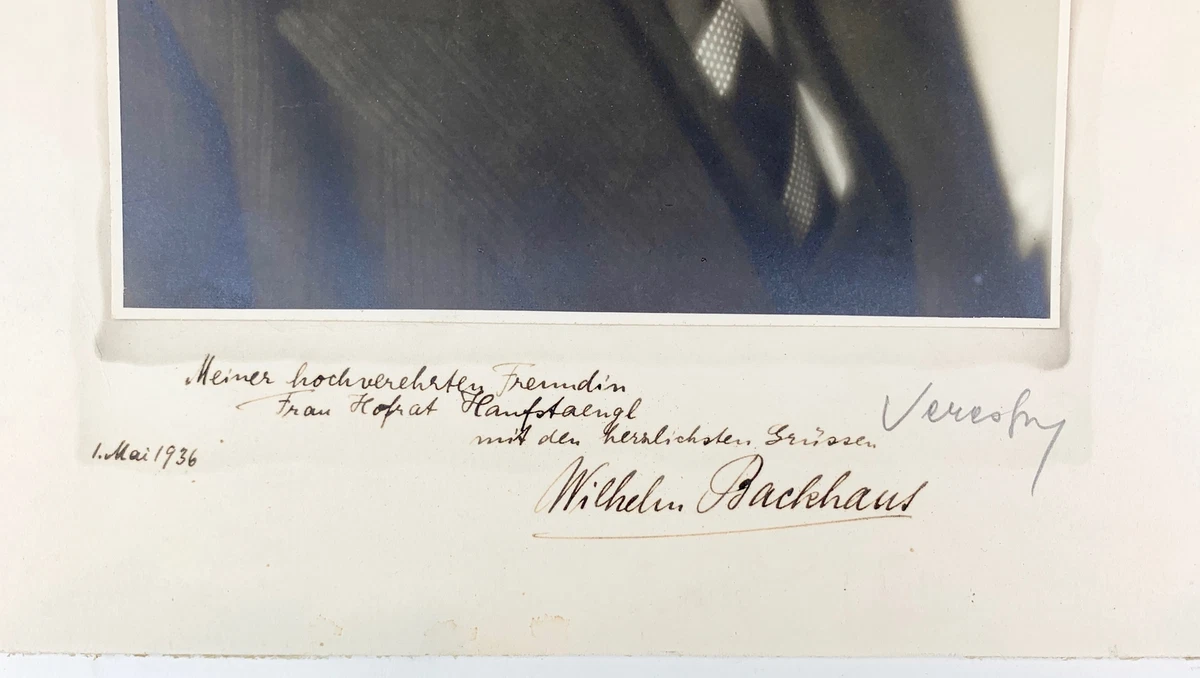 Meiner hochverehrten Freundin
Frau Hofrat Hanfstaengl
mit den herzlichsten Grüssen
1. Mai 1936
Wilhelm Backhaus